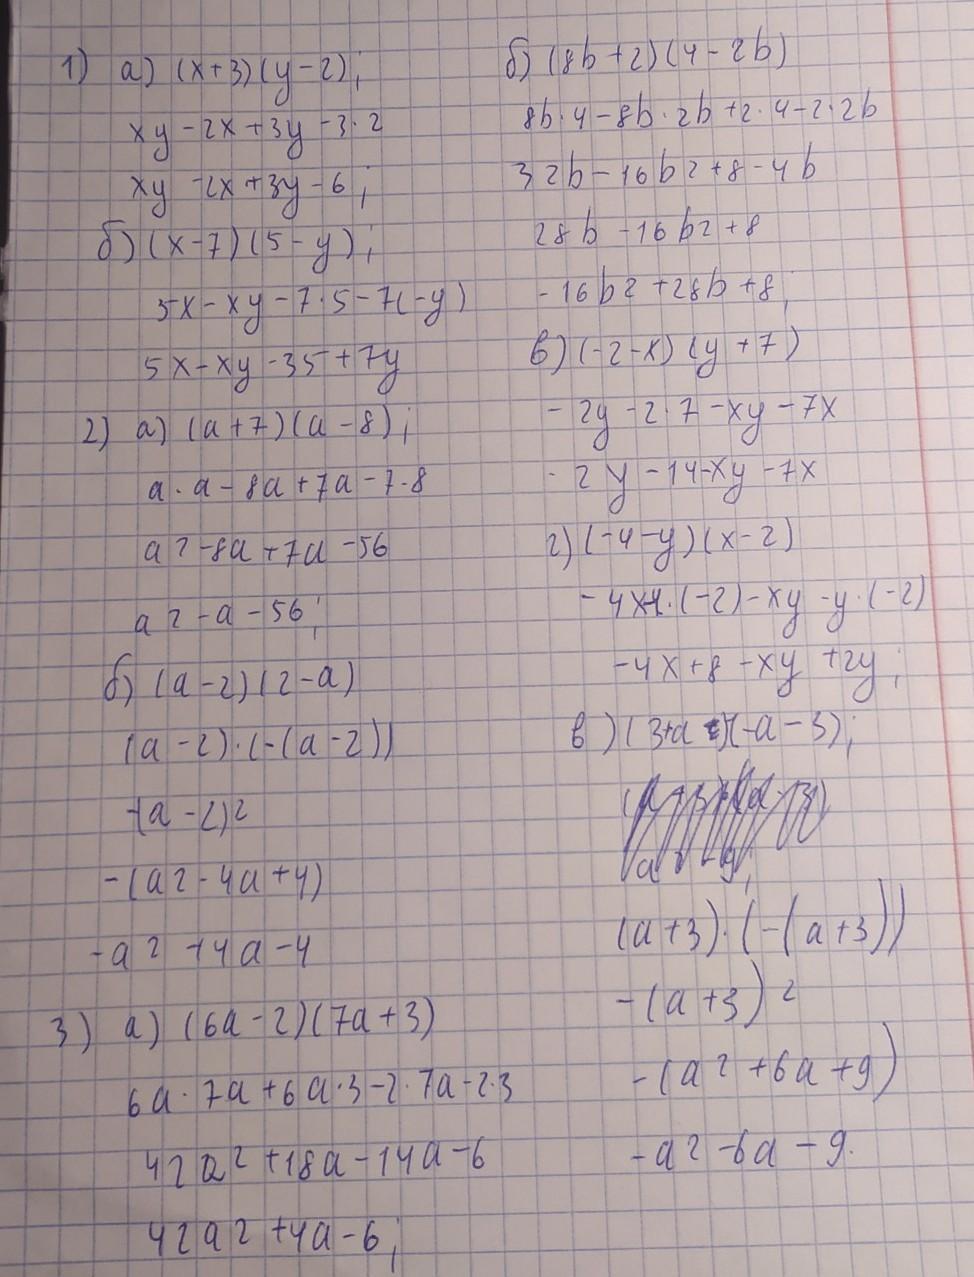 1) а) (x+3)(y-2);
xy-2x+3y-3·2
xy-2x+3y-6;
б) (x-7)(5-y);
5x-xy-7·5-7(-y)
5x-xy-35+7y
2) а) (a+7)(a-8);
a·a-8a+7a-7·8
a2-8a+7a-56
a2-a-56;
б) (a-2)(2-a)
(a-2)·(-(a-2))
-(a-2)2
-(a2-4a+4)
-a2+4a-4
3) а) (6a-2)(7a+3)
6a·7a+6a·3-2·7a-2·3
42a2+18a-14a-6
42a2+4a-6;
б) (8b+2)(4-2b)
8b·4-8b·2b+2·4-2·2b
32b-16b2+8-4b
28b-16b2+8
-16b2+28b+8;
в) (-2-x)(y+7)
-2y-2·7-xy-7x
-2y-14-xy-7x
г) (-4-y)(x-2)
-4x-4·(-2)-xy-y·(-2)
-4x+8-xy+2y;
в) (3+a)(-a-3);
(a+3)·(-(a+3))
-(a+3)2
-(a2+6a+9)
-a2-6a-9.